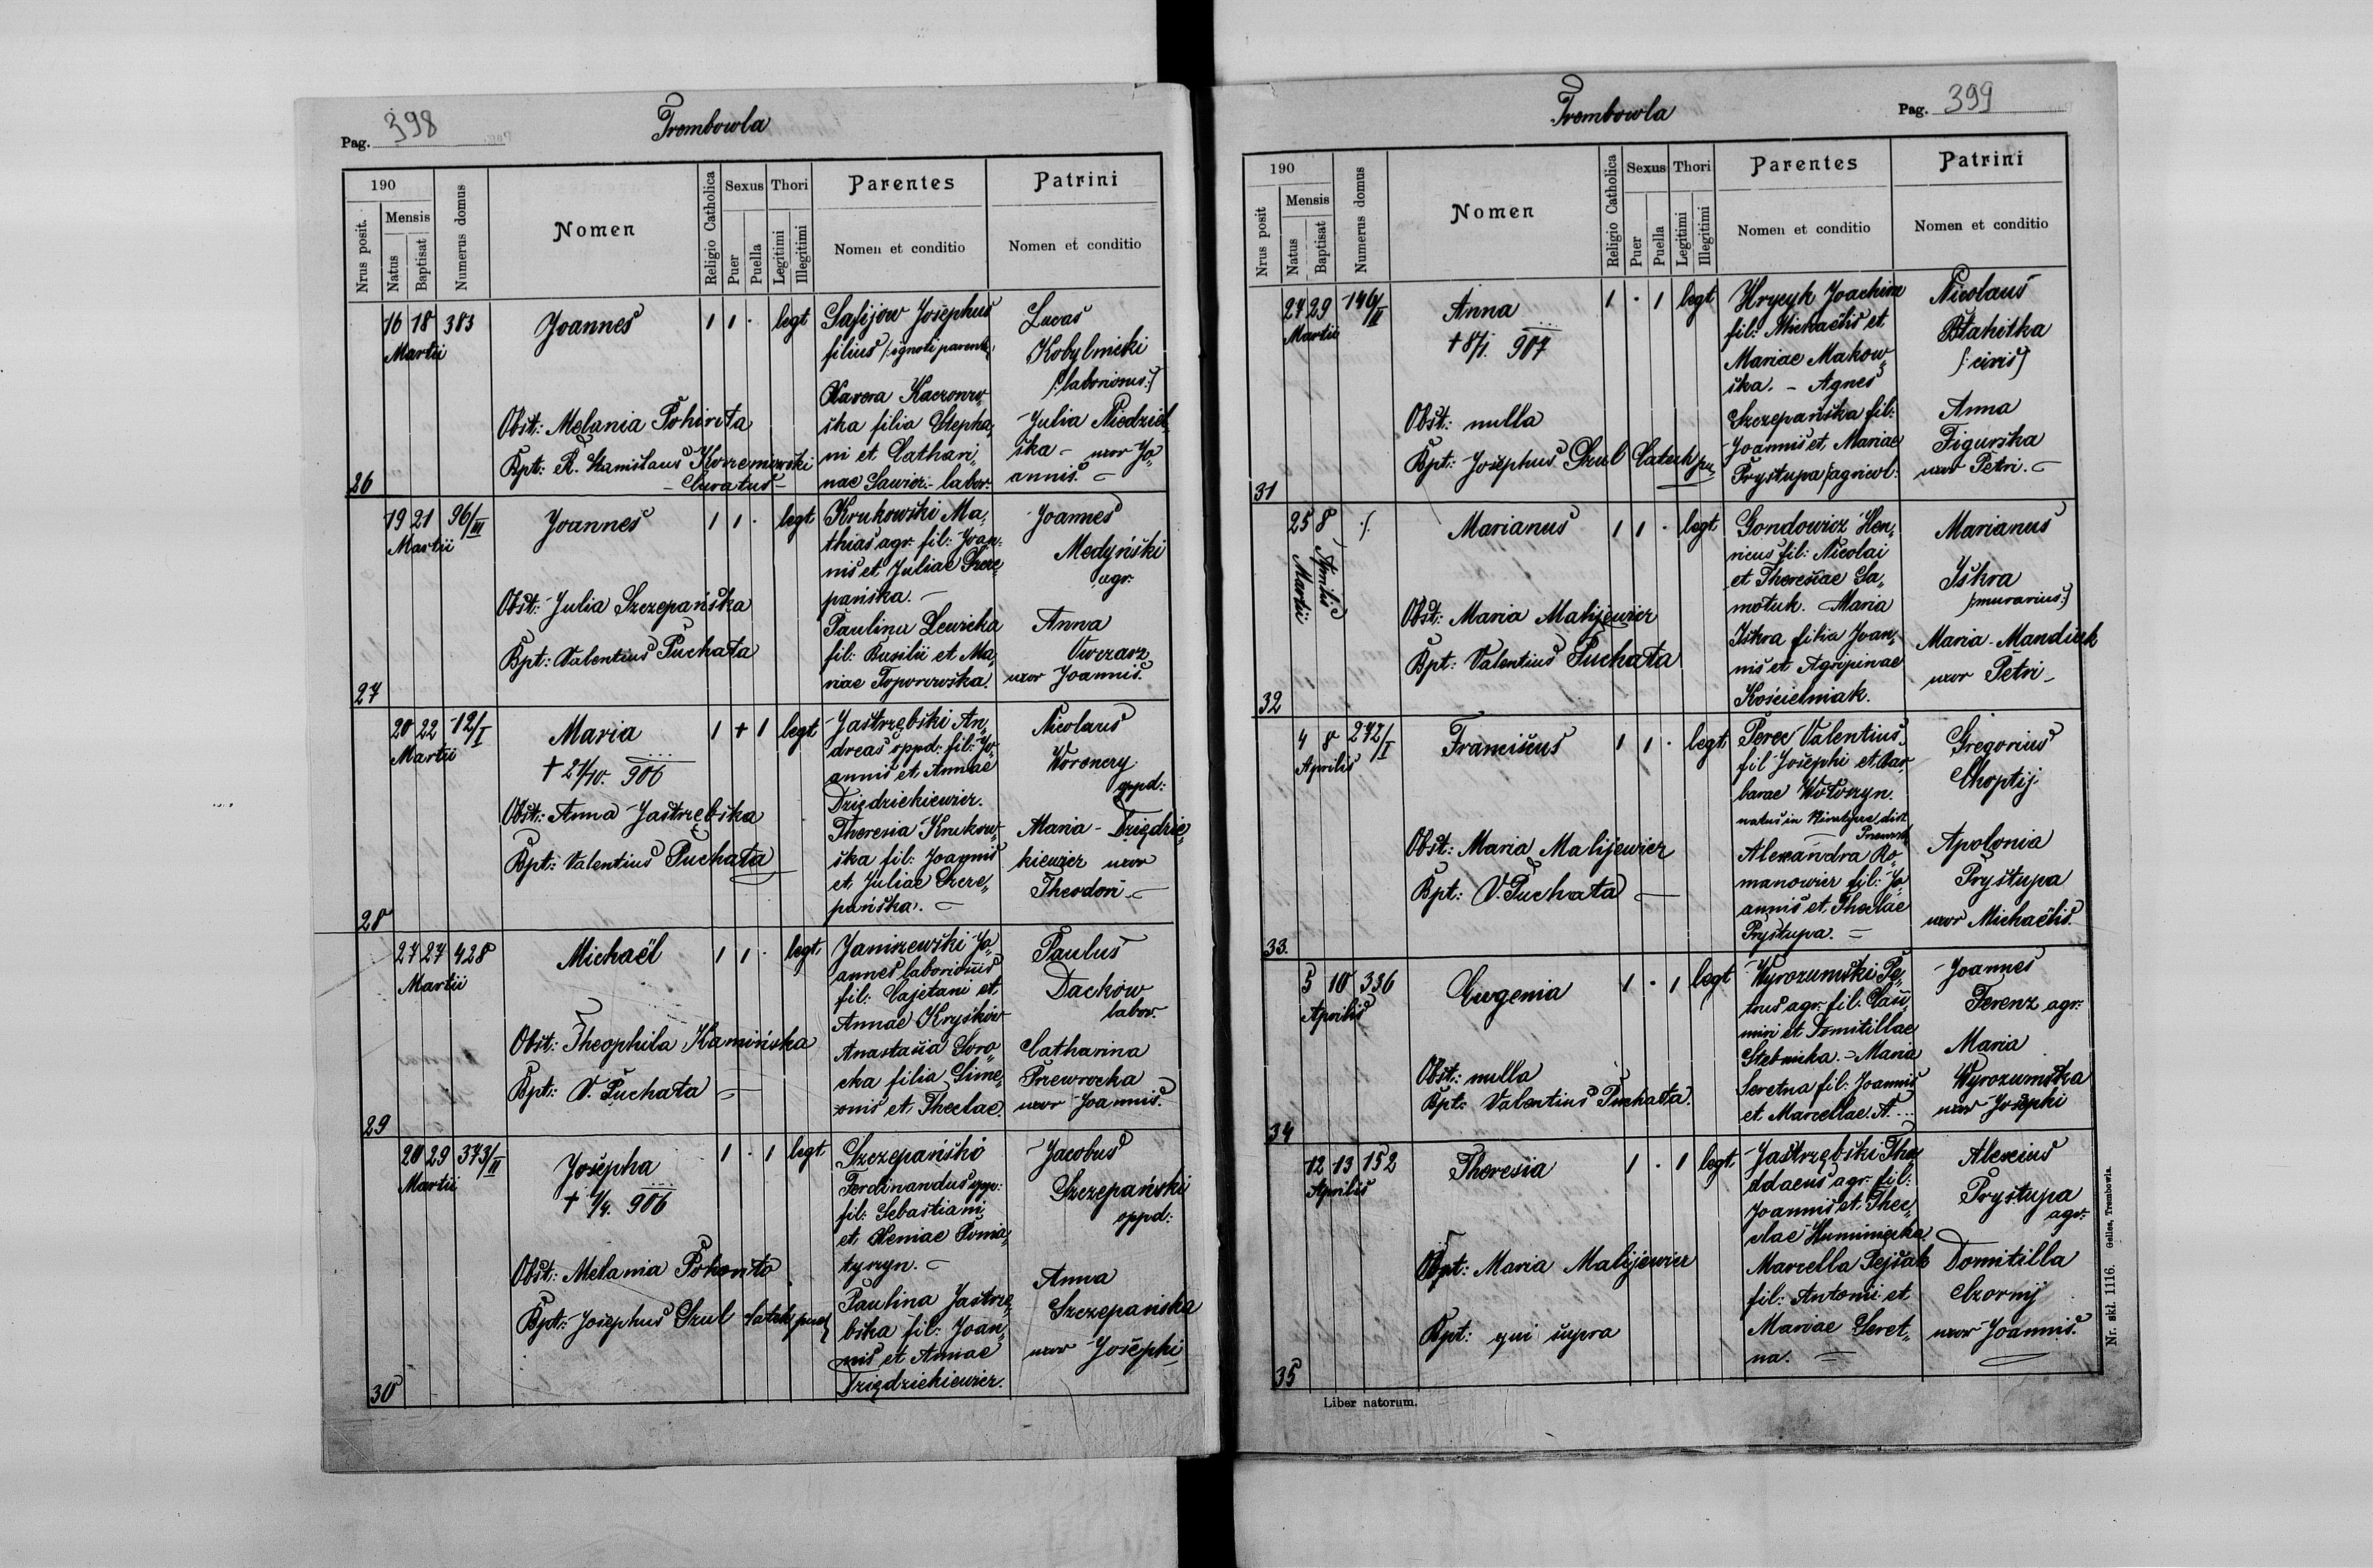 Pag. 398
Trembowla
190
Nrus posit.
Mensis
Natus
Baptisat
Numerus domus
Nomen
Religio Catholica
Sexus
Puer
Puella
Thori
Legitimi
Illegitimi
Parentes
Nomen et conditio
Patrini
Nomen et conditio
26
16 18 383
Martii
Joannes
Obst: Melania Pohorita
Bpt: R. Stanislaus
- Curatus -
1 1 · legt
Safijow Josephus
filius /: ignoti parentis
Xavera
ska filia Stepha„
ni et Cathari„
nae labor.
Lucas
Kobylnicki
/: laboriosus :/
Julia Niedziel„
ska - uxor Jo„
annis.
27
19 21 96/III
Martii
Joannes
Obst: Julia Szczepańska
Bpt: Valentius Puchała
1 1 · legt
Krukowski Ma„
thias agr. fil: Joan„
nis et Juliae Szcze„
pańska. -
Paulina Lewicka
fil: Basilii et Ma„
riae Toporowska.
Joannes
Medyński
agr.
Anna
uxor Joannis.
28
20 22 12/I
Martii
Maria
† 21/10. 906
Obst: Anna Jastrzębska
Bpt: Valentius Puchała
1 + 1 legt
Jastrzębski An„
dreas oppd: fil: Jo„
annis et Annae
Dzięдzickiewicz.
Theresia Krukow„
ska fil: Joannis
et Juliae Szcze„
pańska. -
Nicolaus
Woronery
oppd:
Maria - Dzięдzic„
kiewicz uxor
Theodori -
29
27 27 428
Martii
Michaël
Obst: Theophila Kamińska
Bpt: V. Puchała -
1 1 · legt.
Janiszewski Jo„
annes laboriosus
fil: Cajetani et
Annae Kryśków
Anastasia Soro„
cka filia Sime„
onis et Theclae.
Paulus
Dacków
labor.
Catharina
Przewrocka
uxor Joannis.
30
20 29 373/II
Martii
Josepha
† 1/4. 906
Obst: Melania Pohorito
Bpt: Josephus Szul
1 · 1 legt
Szczepański
Ferdinandus
fil: Sebastiani
et Xeniae Poma„
tyryn. -
Paulina Jastrzę„
bska fil: Joan„
nis et Annae
Dziędzickiewicz.
Jacobus
Szczepański
oppd:
Anna
Szczepańska
uxor Josephi
Trembowla
Pag. 399
190
Nrus posit
Mensis
Natus
Baptisat
Numerus domus
Nomen
Religio Catholica
Sexus
Puer
Puella
Thori
Legitimi
Illegitimi
Parentes
Nomen et conditio
Patrini
Nomen et conditio
31
27 29 146/II
Martii
Anna
† 8/1. 907
Obst: nulla
Bpt: Josephus Szul
1 · 1 legt
Hrycyk Joachim
fil: Michaëlis et
Mariae Makow„
ska. - Agnes
Szczepańska fil:
Joannis et Mariae
Prystupa /agricol:
Nicolaus
Błahitka
/: civis /
Anna
Figurska
uxor Petri. -
32
25 8 /.
Martii Aprilis
Marianus
Obst: Maria Malijewicz
Bpt: Valentius Puchała
1 1 · legt
Gondowicz Hen„
ricus fil: Nicolai
et Theresiae Sa„
motuk. Maria
Iskra filia Joan„
nis et Agripinae
Kościelniak.
Marianus
Iskra
/: murarius :/
Maria - Mandiuk
uxor Petri -
33.
4 8 272/I
Aprilis
Franciscus
Obst: Maria Malijewicz
Bpt: V. Puchała -
1 1 · legt
Perec Valentius
fil Josephi et Bar„
barae Wołoszyn.
natus in dist
Alexandra Ro„
manowicz fil: Jo„
annis et Theclae
Prystupa. -
Gregorius
Choptij
Apolonia
Prystupa
uxor Michaëlis.
34
5 10 336
Aprilis
Eugenia
Obst: nulla
Bpt: Valentius Puchała.
1 · 1 legt
Wyrozumski Pe„
trus agr. fil: Casi„
miri et Domitillae
Stebnicka. - Maria
Seretna fil: Joannis
et Marcellae A. ...
Joannes
Ferenz agr:
Maria
Wyrozumska
uxor Josephi
35
12 13 152
Aprilis
Theresia
Obst: Maria Malijewicz
Bpt: qui supra
1 · 1 legt
Jastrzębski Tha„
ddaeus agr. fil:
Joannis et Thec„
lae
Marcella Pejsak
fil: Antonii et
Mariae Seret„
na. -
Alexius
Prystupa
agr:
Domitilla
Czornij
uxor Joannis.
Liber natorum.
Nr. skł. 1116. Gelles, Trembowla.